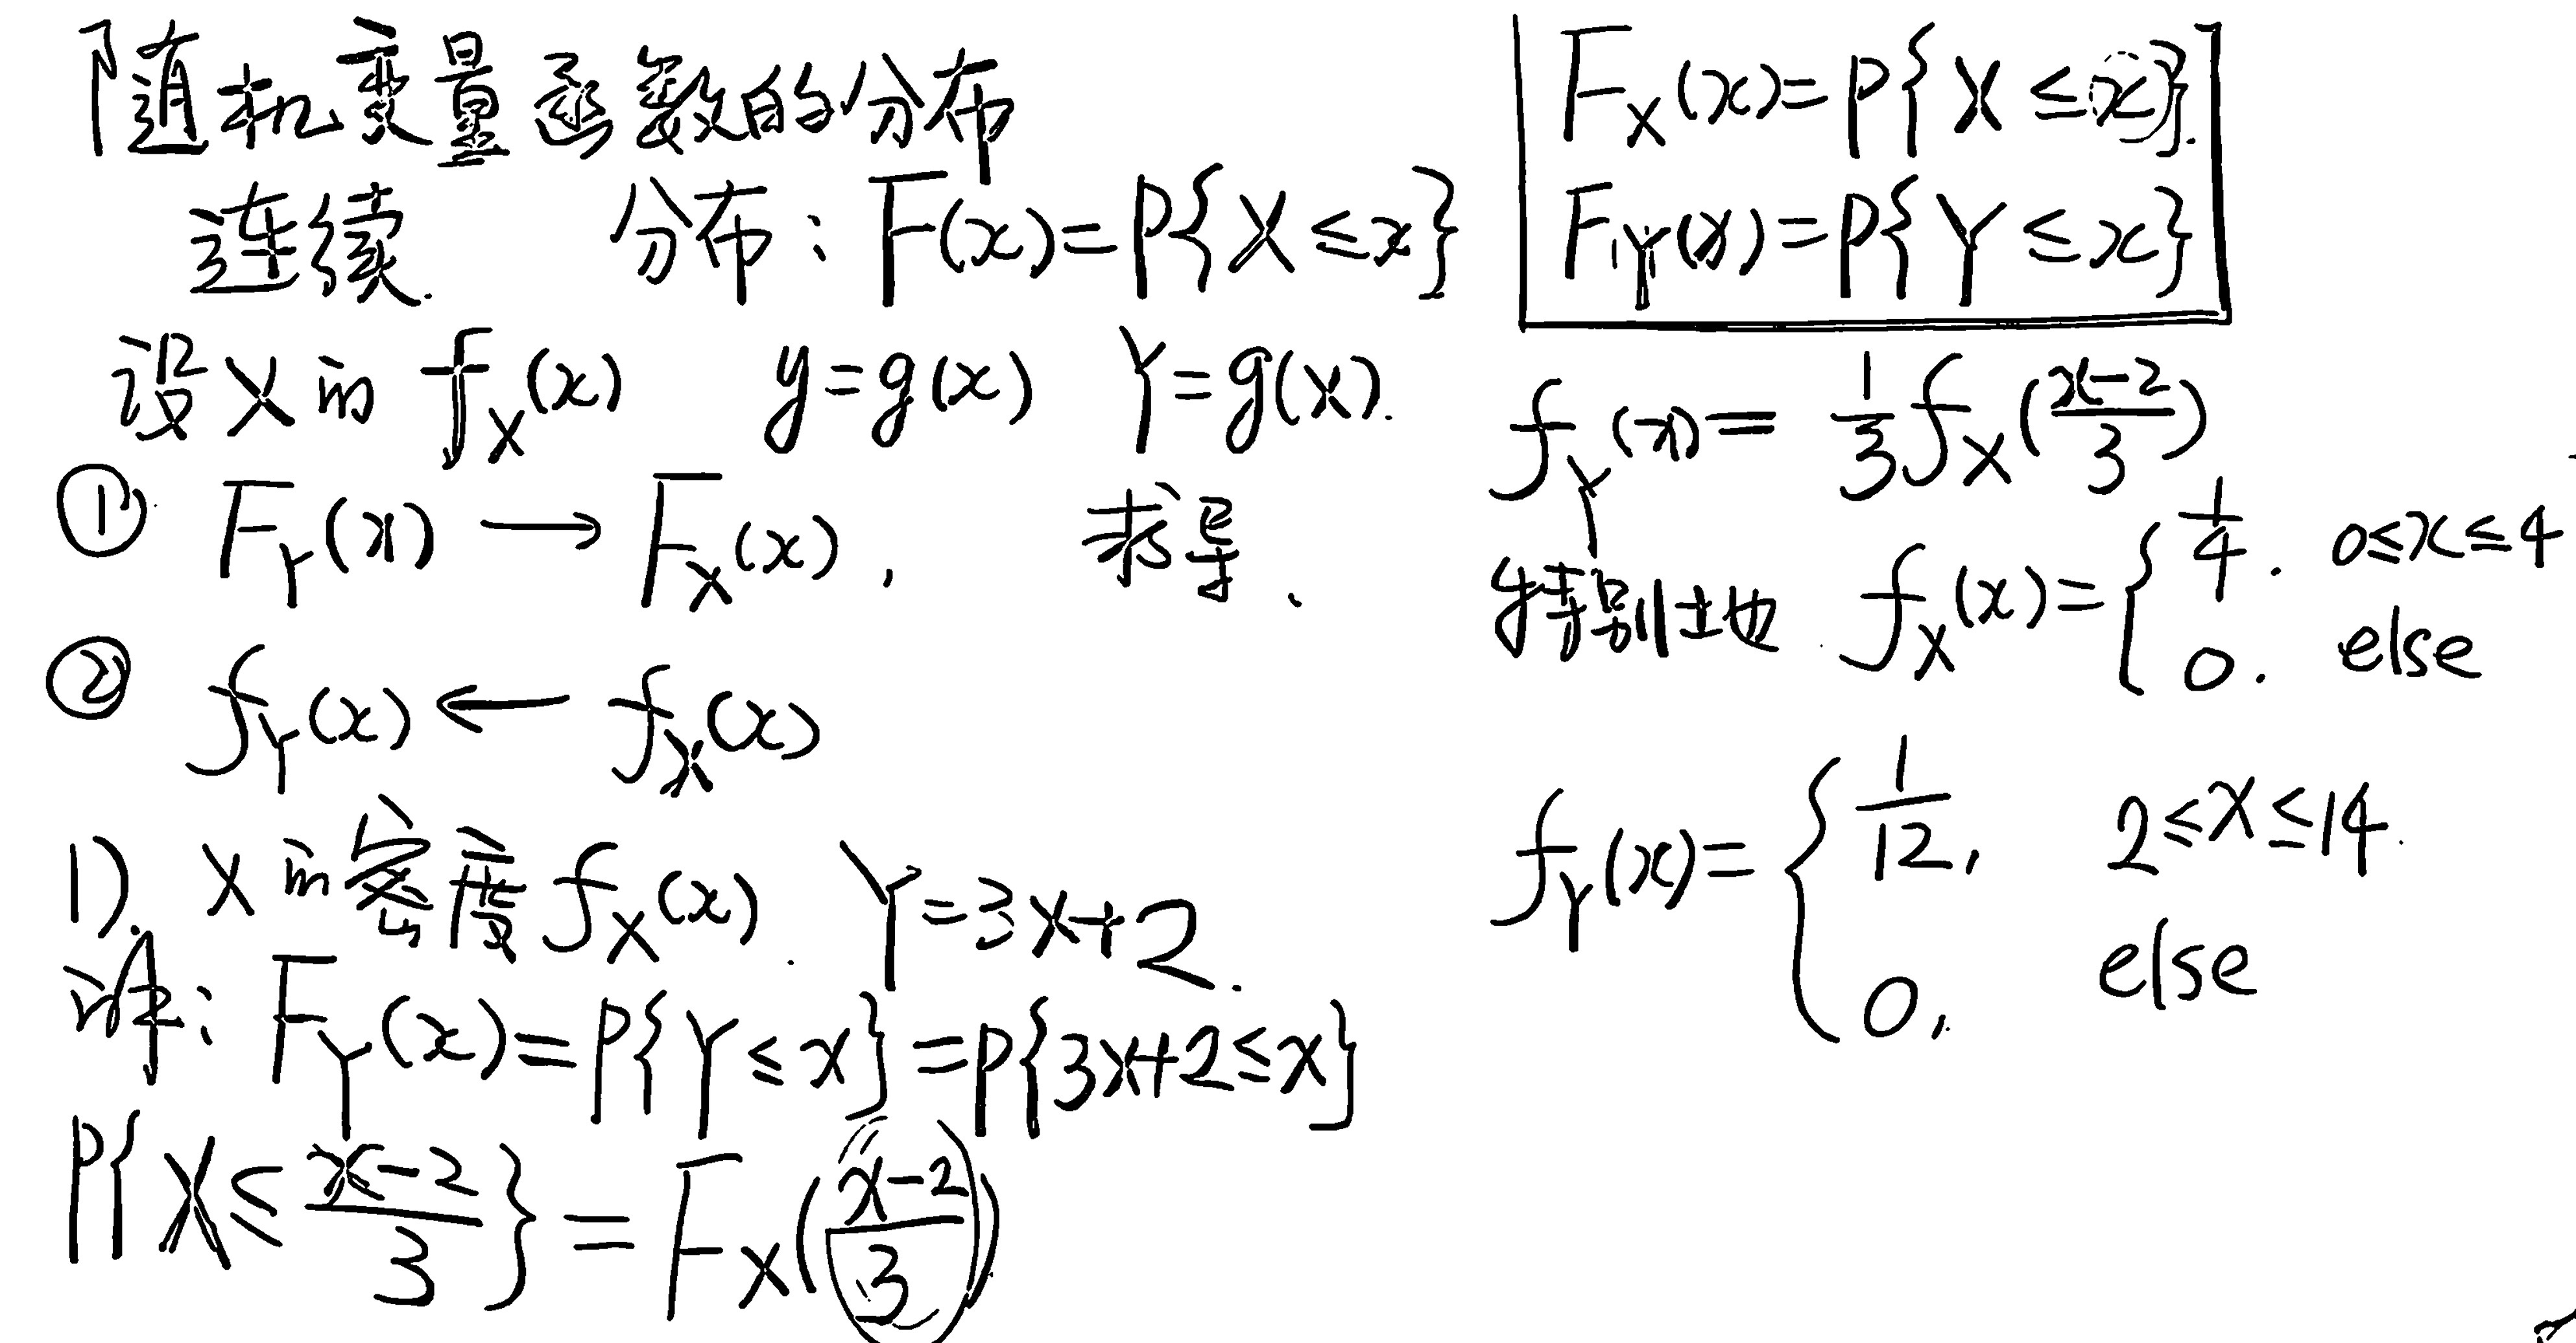 随机变量函数的分布
连续. 分布: F(x)=P{X≤x}
设X的 f_X(x) y=g(x) Y=g(X).
① F_Y(x) → F_X(x), 求导、
② f_Y(x) ← f_X(x)
1). X的密度 f_X(x). Y=3X+2.
译: F_Y(x)=P{Y≤x}=P{3X+2≤x}
P{X≤\frac{x-2}{3}}=F_X(\frac{x-2}{3})
F_X(x)=P{X≤x}.
F_Y(x)=P{Y≤x}
f_Y(x)=\frac{1}{3}f_X(\frac{x-2}{3})
特别地 f_X(x)={\frac{1}{4}. 0≤x≤4
0. else
f_Y(x)={\frac{1}{12}, 2≤x≤14.
0, else